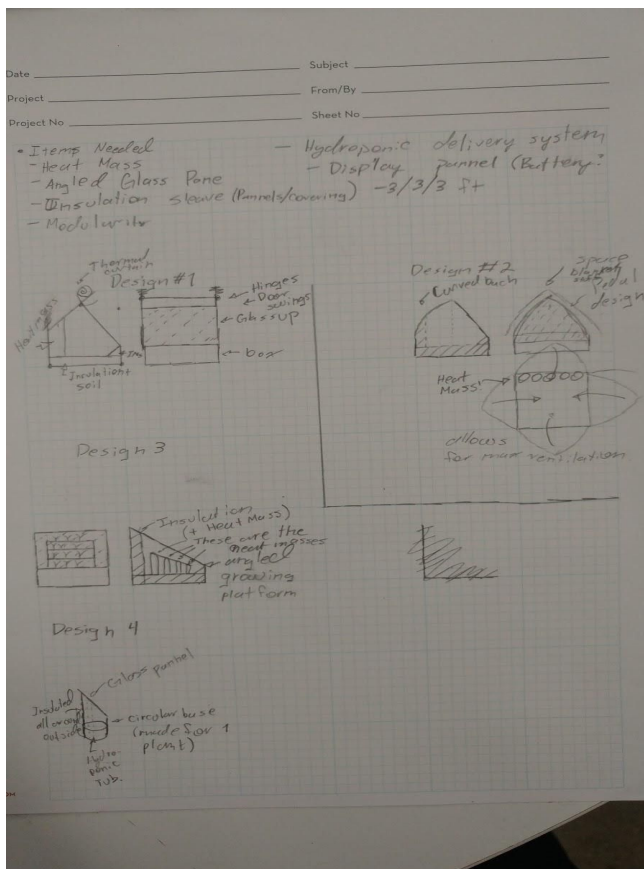 Date
Subject
Project
From/By
Project No
Sheet No
• Items Needed
- Heat Mass
- Angled Glass Pane
- Insulation sleeve (Pannels/covering)
- Modularity
- Hydroponic delivery system
- Display pannel (Battery?
-3/3/3 ft
Design #1
Thermal curtain
Heat mass
Insulation + soil
Hinges
Door swings up
Glass
box
Design #2
Curved bach
space blanket
Petal design
Heat Mass
allows for max ventilation
Design 3
Insulation
(+ Heat Mass)
These are the
heat masses
angled
growing
platform
Design 4
Glass pannel
Insulated
all around
outside
circular base
(made for 1
plant)
Hydro-
ponic
Tub.